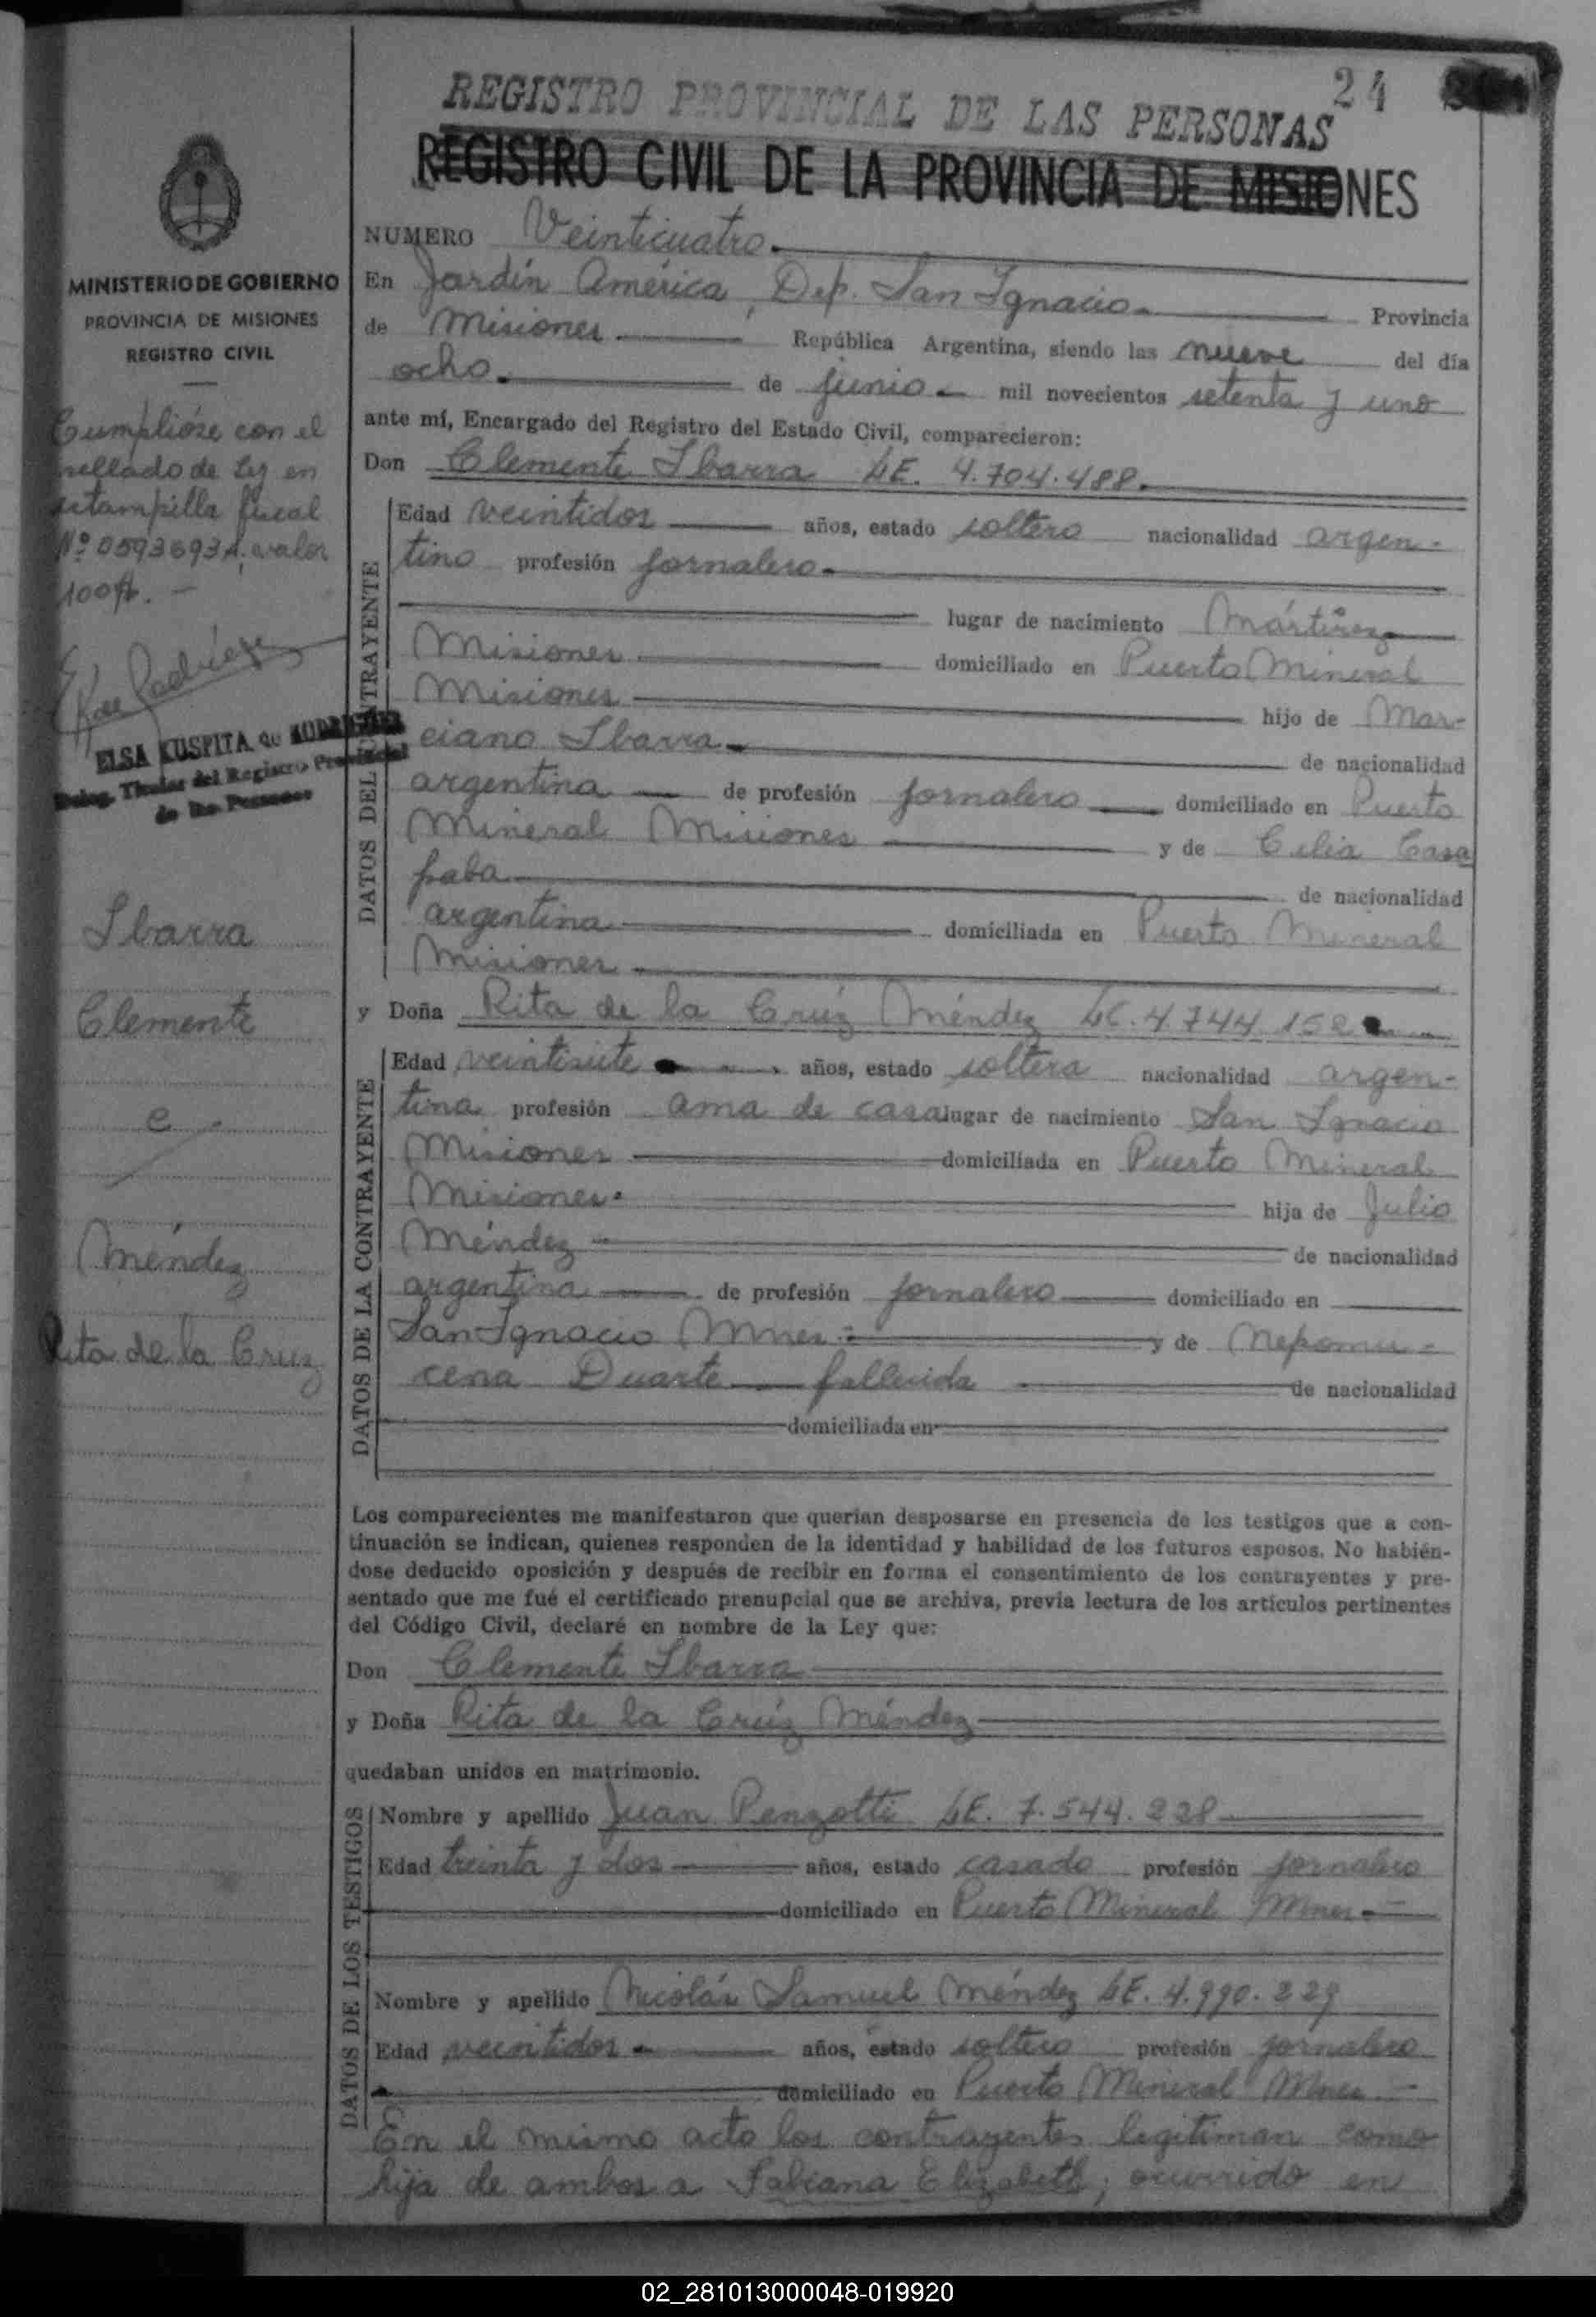 24
REGISTRO PROVINCIAL DE LAS PERSONAS
REGISTRO CIVIL DE LA PROVINCIA DE MISIONES
MINISTERIO DE GOBIERNO
PROVINCIA DE MISIONES
REGISTRO CIVIL
Cumplióse con el
sellado de Ley en
estampilla fiscal
Nº 0593693A. valor
100 $.-
ELSA KUSPITA de RODRIGUEZ
Deleg. Titular del Registro Provincial
de las Personas
Ibarra
Clemente
e
Méndez
Rita de la Cruz
NUMERO Veinticuatro.
En Jardín América, Dep. San Ignacio. Provincia
de Misiones República Argentina, siendo las nueve del día
ocho. de junio mil novecientos setenta y uno
ante mí, Encargado del Registro del Estado Civil, comparecieron:
Don Clemente Ibarra LE. 4.704.488.
DATOS DEL CONTRAYENTE
Edad veintidos años, estado soltero nacionalidad argen-
tino profesión jornalero.
lugar de nacimiento Mártires
Misiones domiciliado en Puerto Mineral
Misiones hijo de Mar-
ciano Ibarra. de nacionalidad
argentina de profesión jornalero domiciliado en Puerto
Mineral Misiones y de Celia Casa
paba de nacionalidad
argentina domiciliada en Puerto Mineral
Misiones
y Doña Rita de la Crúz Méndez LC. 4.744.152
DATOS DE LA CONTRAYENTE
Edad veintisiete años, estado soltera nacionalidad argen-
tina profesión ama de casa lugar de nacimiento San Ignacio
Misiones domiciliada en Puerto Mineral
Misiones. hija de Julio
Méndez de nacionalidad
argentina de profesión jornalero domiciliado en
San Ignacio Mnes.- y de Nepomu-
cena Duarte fallecida de nacionalidad
domiciliada en
Los comparecientes me manifestaron que querían desposarse en presencia de los testigos que a con-
tinuación se indican, quienes responden de la identidad y habilidad de los futuros esposos. No habién-
dose deducido oposición y después de recibir en forma el consentimiento de los contrayentes y pre-
sentado que me fué el certificado prenupcial que se archiva, previa lectura de los artículos pertinentes
del Código Civil, declaré en nombre de la Ley que:
Don Clemente Ibarra
y Doña Rita de la Crúz Méndez
quedaban unidos en matrimonio.
DATOS DE LOS TESTIGOS
Nombre y apellido Juan Penzotti LE. 7.544.228
Edad treinta y dos años, estado casado profesión jornalero
domiciliado en Puerto Mineral Mnes.-
Nombre y apellido Nicolás Samuel Méndez LE. 4.990.229
Edad veintidos años, estado soltero profesión jornalero
domiciliado en Puerto Mineral Mnes.-
En el mismo acto los contrayentes legitiman como
hija de ambos a Fabiana Elizabeth; ocurrido en
02_281013000048-019920